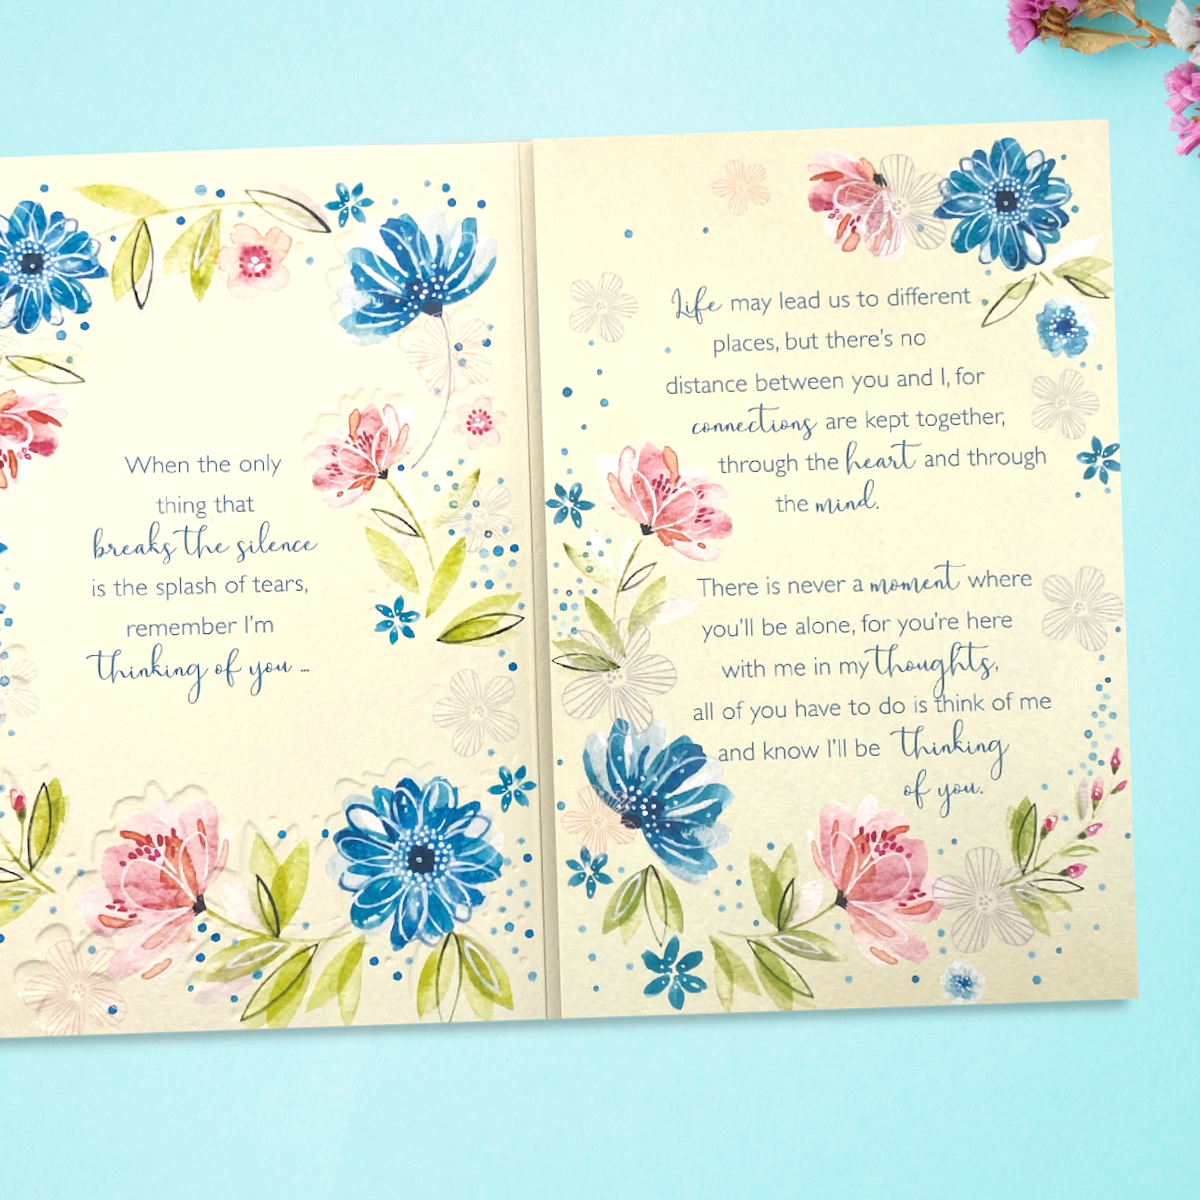 When the only
thing that
breaks the silence
is the splash of tears,
remember I'm
thinking of you ...
Life may lead us to different
places, but there's no
distance between you and I, for
connections are kept together,
through the heart and through
the mind.
There is never a moment where
you'll be alone, for you're here
with me in my thoughts,
all of you have to do is think of me
and know I'll be thinking
of you.